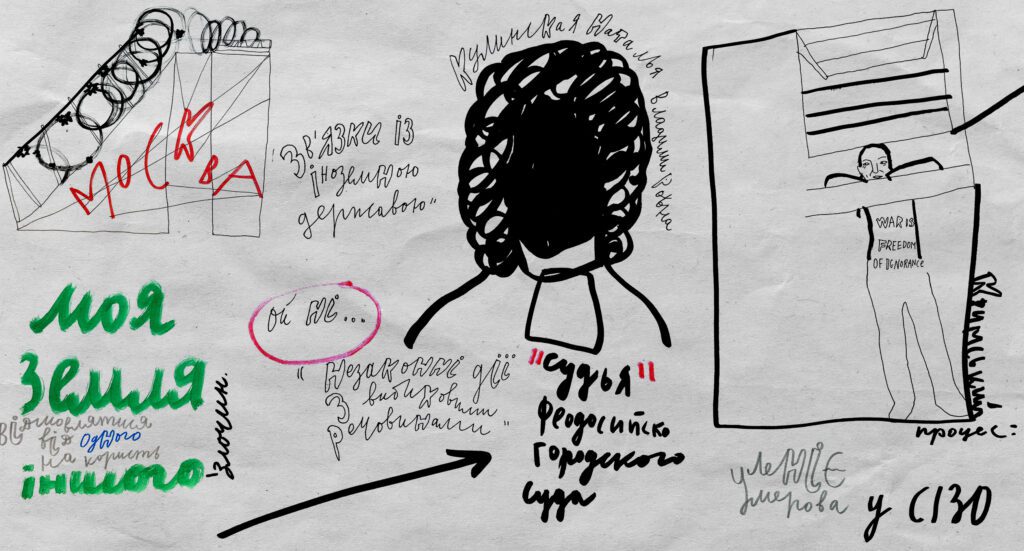 МОСКВА
"Зв'язки із
іноземною
державою"
Кулинская Наталья Владимировна
WAR IS
FREEDOM
OF IGNORANCE
моя
Земля
відмовлятися
від одного
на користь
іншого
-Злочин.
ой ні...
"Незаконні дії
З вибиховими
речовинами"
"судья"
феодосийско
городского
суда
Кримський
процес:
улеНІЄ
умерова
у СІЗО